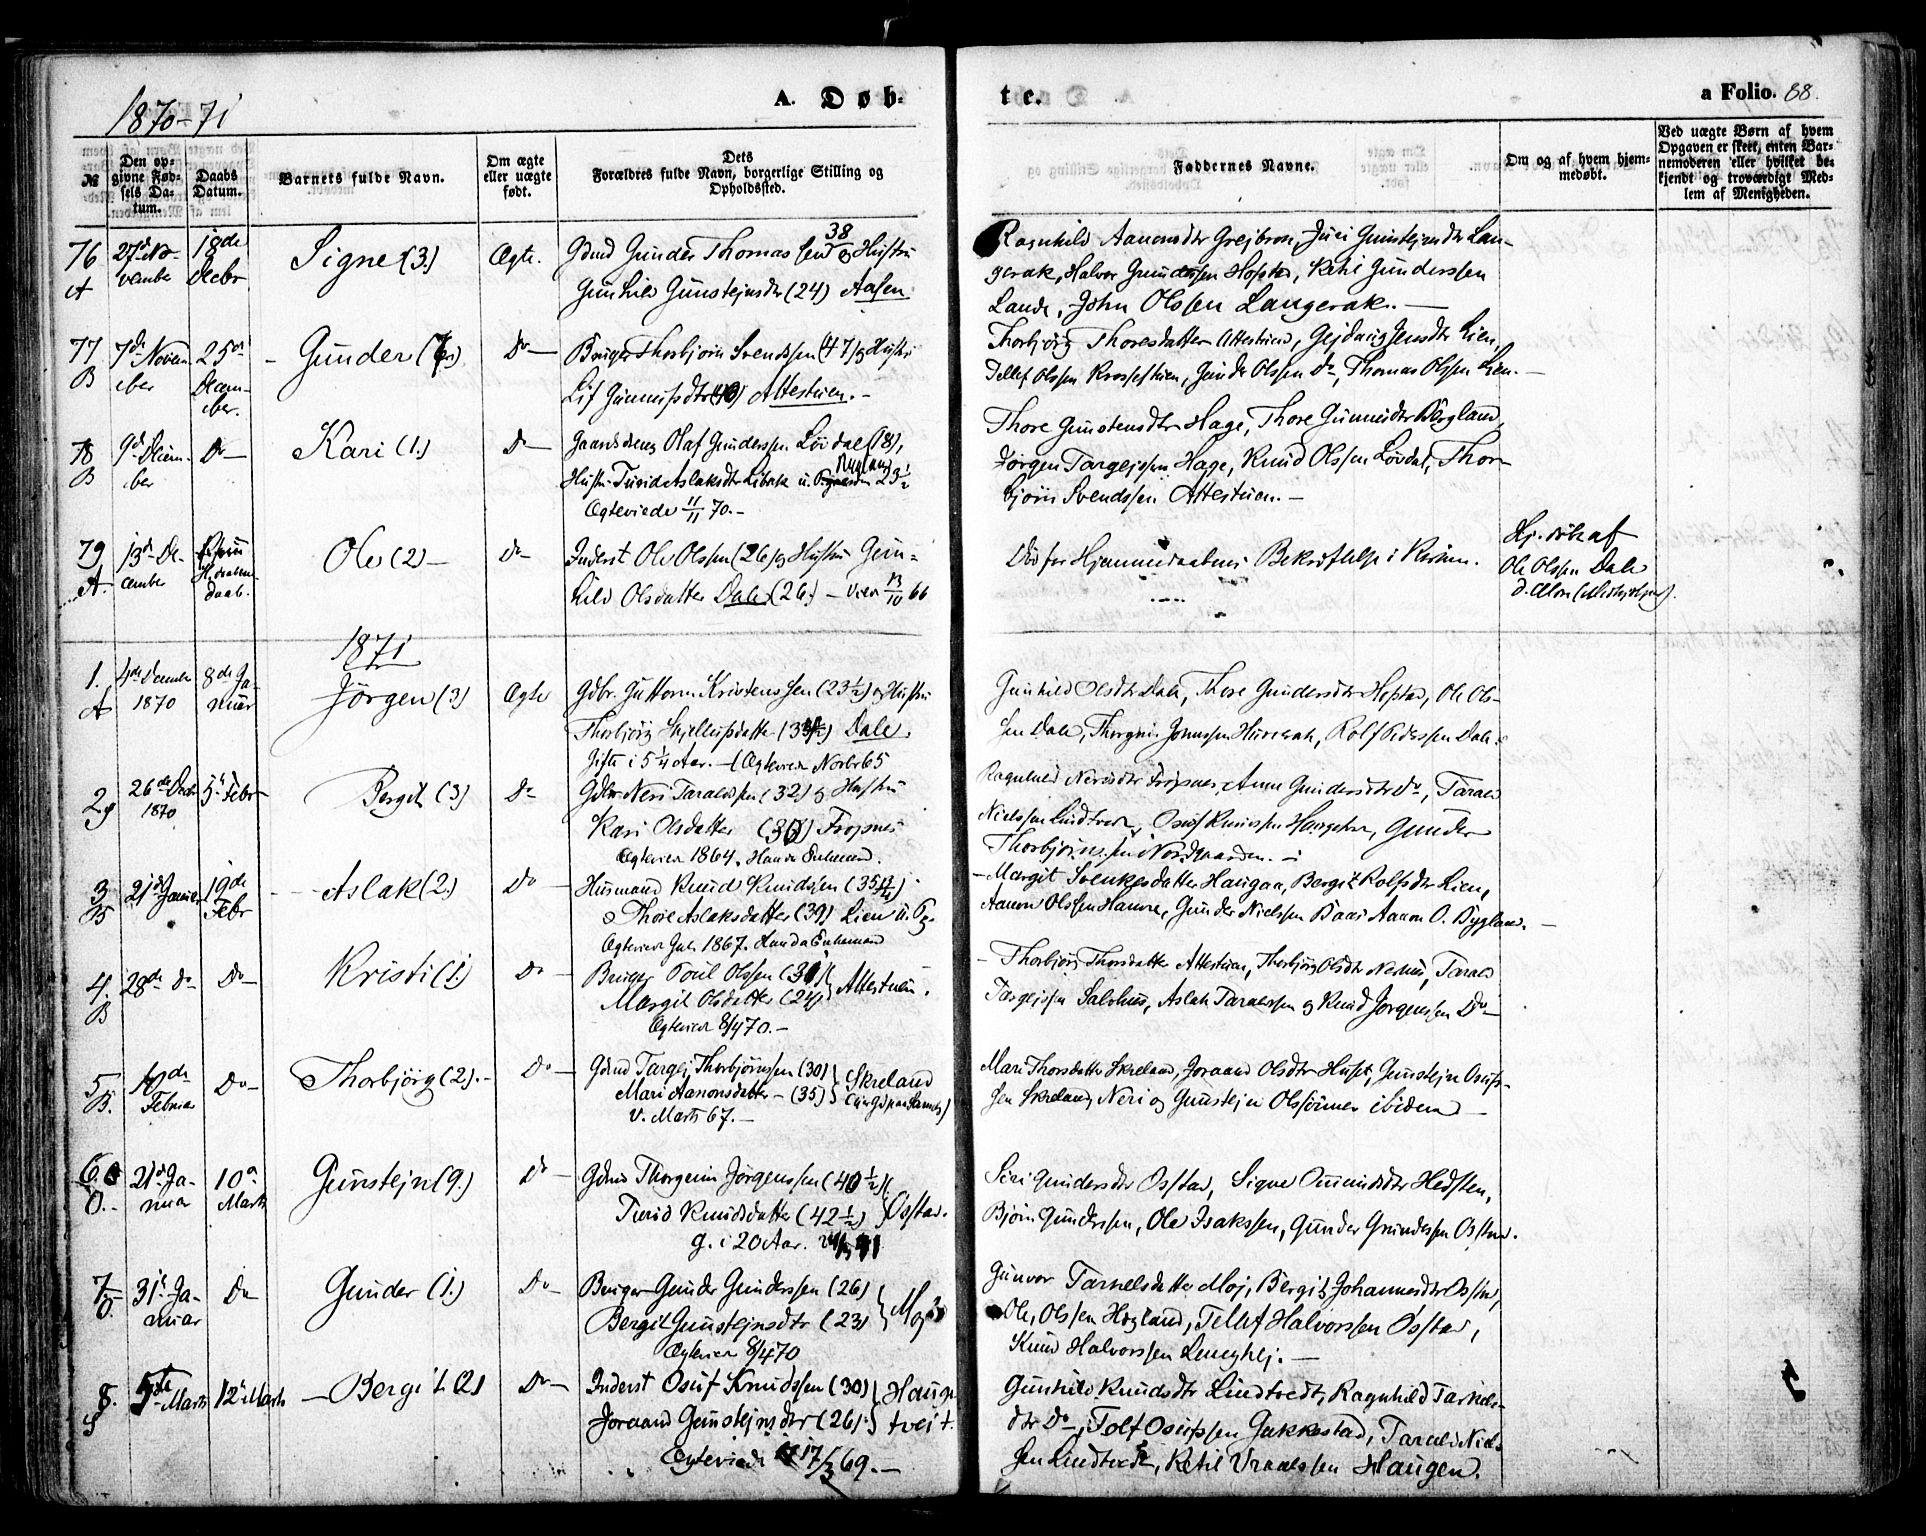 1870-71
A. Døb-
te.
a Folio. 88.
№
Den op-
givne Fød-
sels Da-
tum.
Daabs
Datum.
Barnets fulde Navn.
Om ægte
eller uægte
født.
Dets
Forældres fulde Navn, borgerlige Stilling og
Opholdssted.
Faddernes Navne.
Om og af hvem hjem-
medøbt.
Ved uægte Børn af hvem
Opgaven er skeet, enten Bar-
nemoderen eller hvilket be-
kjendt og troværdigt Med-
lem af Menigheden.
76
A
27de No-
vember
18de
Decbr
Signe (3.)
Ægte.
Gdmd Gunder Thomassen 38 og Hustru
Gunhild Gunstejnsdtr (24) Aasen
Ragnhild Aanonsdtr Grejbrok, Juri Gunstejnsdtr Lan-
gerak, Halvor Gundersen Hofstad, Ketil Gunderssen
Lande, John Olssen Langerak. —
77
B
7de Novem
ber
25de
Decem-
ber.
Gunder
Do —
Bruger Thorbjørn Svendssen (47) og Hustru
Lif Gunnufsdtr (40) Attestuen. -
Thorbjørg Thoresdatter Attestuen, Jensdtr Lien,
Tellef Olssen Krossestuen, Gunder Olssen Do, Thomas Olssen Lien. —
78
B
9de Decem-
ber
Do —
Kari (1.)
Do —
Gaardsdreng Olaf Gunderssen Løvdal (18),
Hustru Turid Aslaksdtr Libak u. 23½
Ægteviede 11/11 70. -
Thore Gunstensdtr Hage, Thore Gunnufsdtr Bergland,
Jørgen Targejssen Hage, Knud Olssen Løvdal, Thor-
bjørn Svendssen Attestuen. -
79
A.
13de De-
cember
Hjemme-
daab.
Ole (2) —
Do —
Inderst Ole Olssen (26) og Hustru Gun-
hild Olsdatter Dale (26.) - Viet 13/10 66
Død før Hjemmedaabens Bekræftelse i Kirken.
Hj. døbt af
Ole Olssen Dale
1871
1.
A
4de December
1870
8de Ja-
nuar
Jørgen (3)
Ægte
Gdbr. Guttorm Kristenssen (23½) og Hustru
Thorbjørg Kjellufsdatter Dale.
Gifte i 5¼ Aar. - (Ægteviet Novbr 65
Gunhild Olsdtr Dale, Thore Gundersdtr Hofstad, Ole Ols-
sen Dale, Jonnssen Langerak, Rolf Pederssen Dale.
2
26de Decbr
1870
5te Febr
Bergit (3)
Do
Gdbr Neri Taraldssen (32) og Hustru
Kari Olsdatter (36) Frøysnes
Ægteviet 1864. Han da Enkemand.
Ragnhild Nerisdtr Frøysnes, Anne Gundersdtr Do, Tarald
Nielssen Lindtvedt, Osuf Knudssen Haugetveit, Gunder
Thorbjørnssen Nordgaarden. -
3
B
21de Januar
19de
Febr
Aslak (2.)
Do
Husmand Knud Knudssen (35
og Thore Aslaksdatter (39) Lien u. Bg.
Ægteviet Juli 1867. Han da Enkemand
- Margit Svenkesdatter Haugaa, Bergit Rolfsdtr Lien,
Aanon Olssen Hamre, Gunder Nielssen Baas Aanon O. Bygland. —
4.
B
28de Do
Do —
Kristi (1.)
Do —
Bruger Poul Olssen (31)
Margit Olsdatter (24) } Attestuen.
Ægteviet 8/4 70. -
- Thorbjørg Thorsdatter Attestuen, Thorbjørg Olsdtr Neshus, Tarald
Targejssen Salshus, Aslak Taraldssen og Knud Jørgenssen Do —
5.
B.
10de
Februar
Do —
Thorbjørg (2). -
Do —
Gdmd Targej Thorbjørnssen (30)
Mari Aanonsdatter - (35) } Skreland
V. Marts 67. -
Mari Thorsdatter Skreland, Joraand Olsdtr Huset, Gunstejn Osufs-
sen Skreland, Neri og Gunstejn Olssønner ibidem —
6.
O. -
21de Ja-
nuar
10de
Marts
Gunstejn (9.)
Do —
Gdmd Thorgeir Jørgenssen (40½)
Turid Knudsdatter (42½) } Osstad.
g. i 20 Aar.
Siri Gundersdtr Osstad, Signe Omundsdtr Hedsten,
Bjørn Gunderssen, Ole Isakssen, Gunder Gunderssen Osstad.
7.
O.
31te Ja-
nuar
Do
Gunder (1.)
Do —
Bruger Gunder Gunderssen (26)
Bergit Gunstejnsdtr (23) } Moj
Ægteviet 8/4 70
Gunvor Tarkelsdatter Moj, Bergit Johannesdtr Osstad,
Ole Olssen Hogland, Tellef Halvorssen Osstad,
Knud Halvorssen Longhej. —
8.
5te Marts
12te Marts
— Bergit (2)
Do —
Inderst Osuf Knudssen (30)
Joraand Gunstejnsdtr (26) } Hauge-
tveit.
Ægteviede 17/3 69. —
Gunhild Knudsdtr Lindtvedt, Ragnhild Tarkels-
dtr Do —, Tolf Osufssen Gakkestad, Tarald Niels-
sen Lindtvedt, Ketil Vraalssen Haugen.